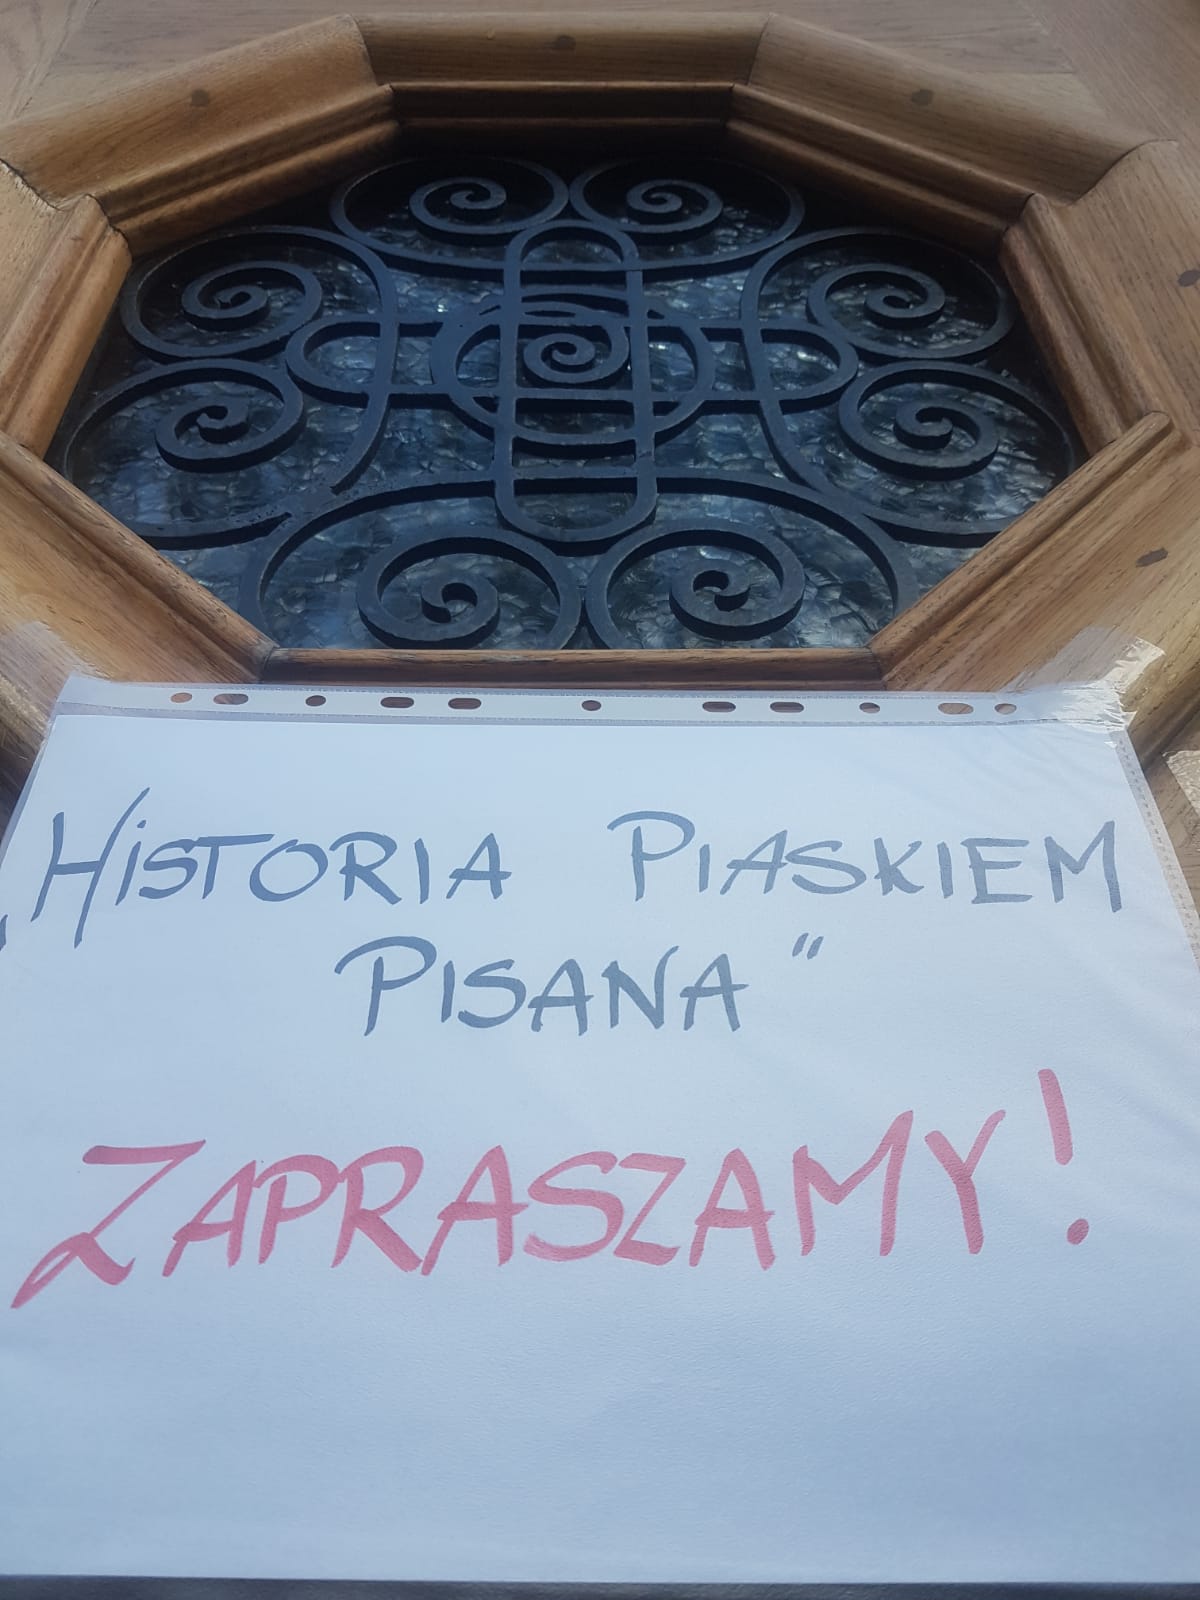 „HISTORIA PIASKIEM
PISANA”
ZAPRASZAMY!